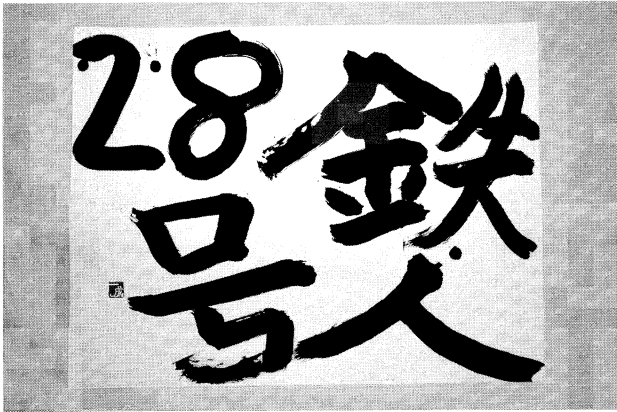 鉄人
28号